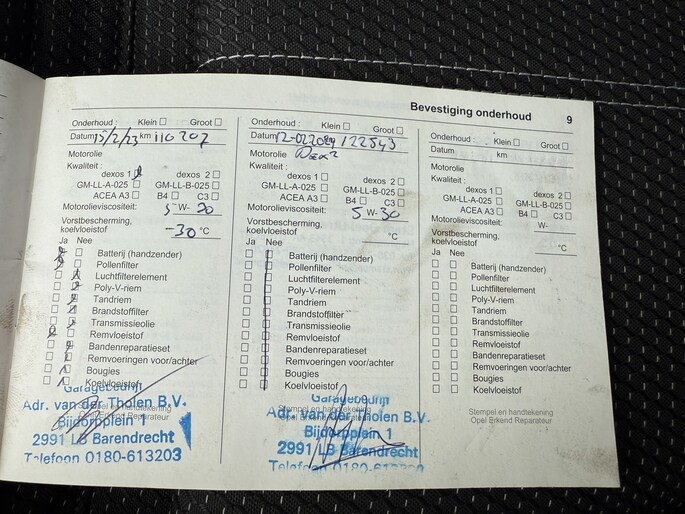 Bevestiging onderhoud 9
Onderhoud : Klein Groot
Datum 15/2/23 km 110 207
Motorolie
Kwaliteit :
dexos 1 dexos 2
GM-LL-A-025 GM-LL-B-025
ACEA A3 B4 C3
Motorolieviscositeit: 5 W- 20
Vorstbescherming, koelvloeistof -30 °C
Ja Nee
Batterij (handzender)
Pollenfilter
Luchtfilterelement
Poly-V-riem
Tandriem
Brandstoffilter
Transmissieolie
Remvloeistof
Bandenreparatieset
Remvoeringen voor/achter
Bougies
Koelvloeistof
Garagebedrijf
Adr. van der Tholen B.V.
Stempel en handtekening
Opel Erkend Reparateur
Bijdorpplein 1
2991 LB Barendrecht
Telefoon 0180-613203
Onderhoud : Klein Groot
Datum 12-02 2024 / 122543
Motorolie Dex 2
Kwaliteit :
dexos 1 dexos 2
GM-LL-A-025 GM-LL-B-025
ACEA A3 B4 C3
Motorolieviscositeit: 5 W- 30
Vorstbescherming, koelvloeistof °C
Ja Nee
Batterij (handzender)
Pollenfilter
Luchtfilterelement
Poly-V-riem
Tandriem
Brandstoffilter
Transmissieolie
Remvloeistof
Bandenreparatieset
Remvoeringen voor/achter
Bougies
Koelvloeistof
Garagebedrijf
Adr. van der Tholen B.V.
Stempel en handtekening
Opel Erkend Reparateur
Bijdorpplein 1
2991 LB Barendrecht
Telefoon 0180-613203
Onderhoud : Klein Groot
Datum km
Motorolie
Kwaliteit :
dexos 1 dexos 2
GM-LL-A-025 GM-LL-B-025
ACEA A3 B4 C3
Motorolieviscositeit: W-
Vorstbescherming, koelvloeistof °C
Ja Nee
Batterij (handzender)
Pollenfilter
Luchtfilterelement
Poly-V-riem
Tandriem
Brandstoffilter
Transmissieolie
Remvloeistof
Bandenreparatieset
Remvoeringen voor/achter
Bougies
Koelvloeistof
Stempel en handtekening
Opel Erkend Reparateur